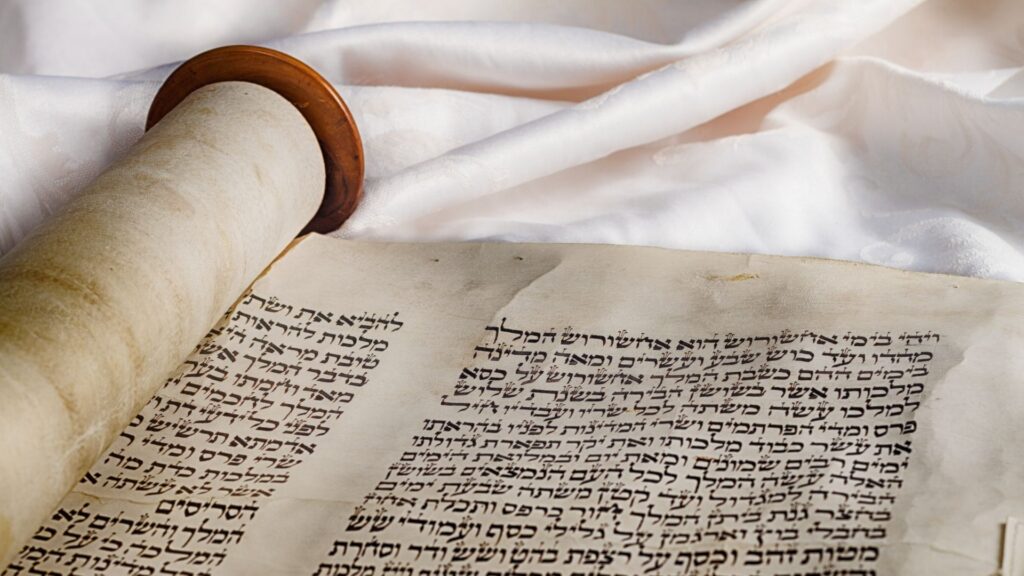 ויהי בימי אחשורוש הוא אחשורוש המלך
מהדו ועד כוש שבע ועשרים ומאה מדינה
בימים ההם כשבת המלך אחשורוש על כסא
מלכותו אשר בשושן הבירה בשנת שלוש
למלכו עשה משתה לכל שריו ועבדיו חיל
פרס ומדי הפרתמים ושרי המדינות לפניו בהראתו
את עשר כבוד מלכותו ואת יקר תפארת גדולתו
ימים רבים שמונים ומאת יום ובמלואת הימים
האלה עשה המלך לכל העם הנמצאים בשושן
הבירה למגדול ועד קטן משתה שבעת ימים
בחצר גנת ביתן המלך חור כרפס ותכלת אחוז
בחבלי בוץ וארגמן על גלילי כסף ועמודי שש
מטות זהב וכסף על רצפת בהט ושש ודר וסחרת
שונים ויין מלכות
להביא את ושת
מלכות להראות
טובת מראה
בדבר המלך
מאד וחמתו בער
המלך לחכמים
לפני כל ידעי דת
אדמתא תרשיש
שרי פרס ומדי ר
במלכות כדת מה
אשר לא עשתה א
הסריסים
המלך והשרים לא
המלכה כי על כל
מדינות